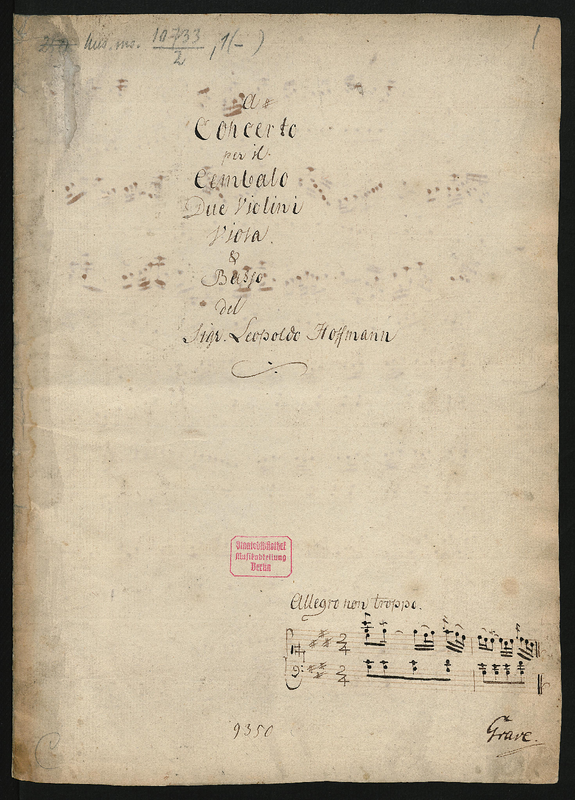 Mus. ms. 10733/2, 1(-)
1
a#
Concerto
per il
Cembalo
Due Violini
Viola.
&
Basso
del
Sigr. Leopoldo Hoffmann
Staatsbibliothek
Musikabteilung
Berlin
Allegro non troppo.
2/4
2/4
9350
Grave.